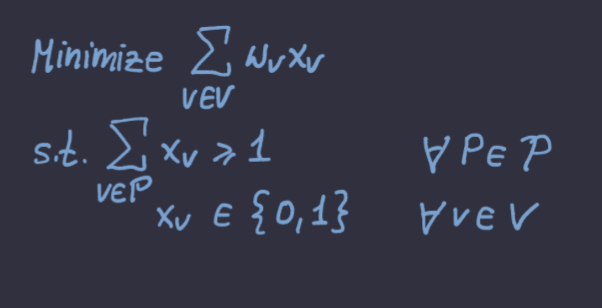 Minimize ∑_{v∈V} w_v x_v
s.t. ∑_{v∈P} x_v ⩾ 1 ∀ P ∈ 𝒫
x_v ∈ {0,1} ∀ v ∈ V